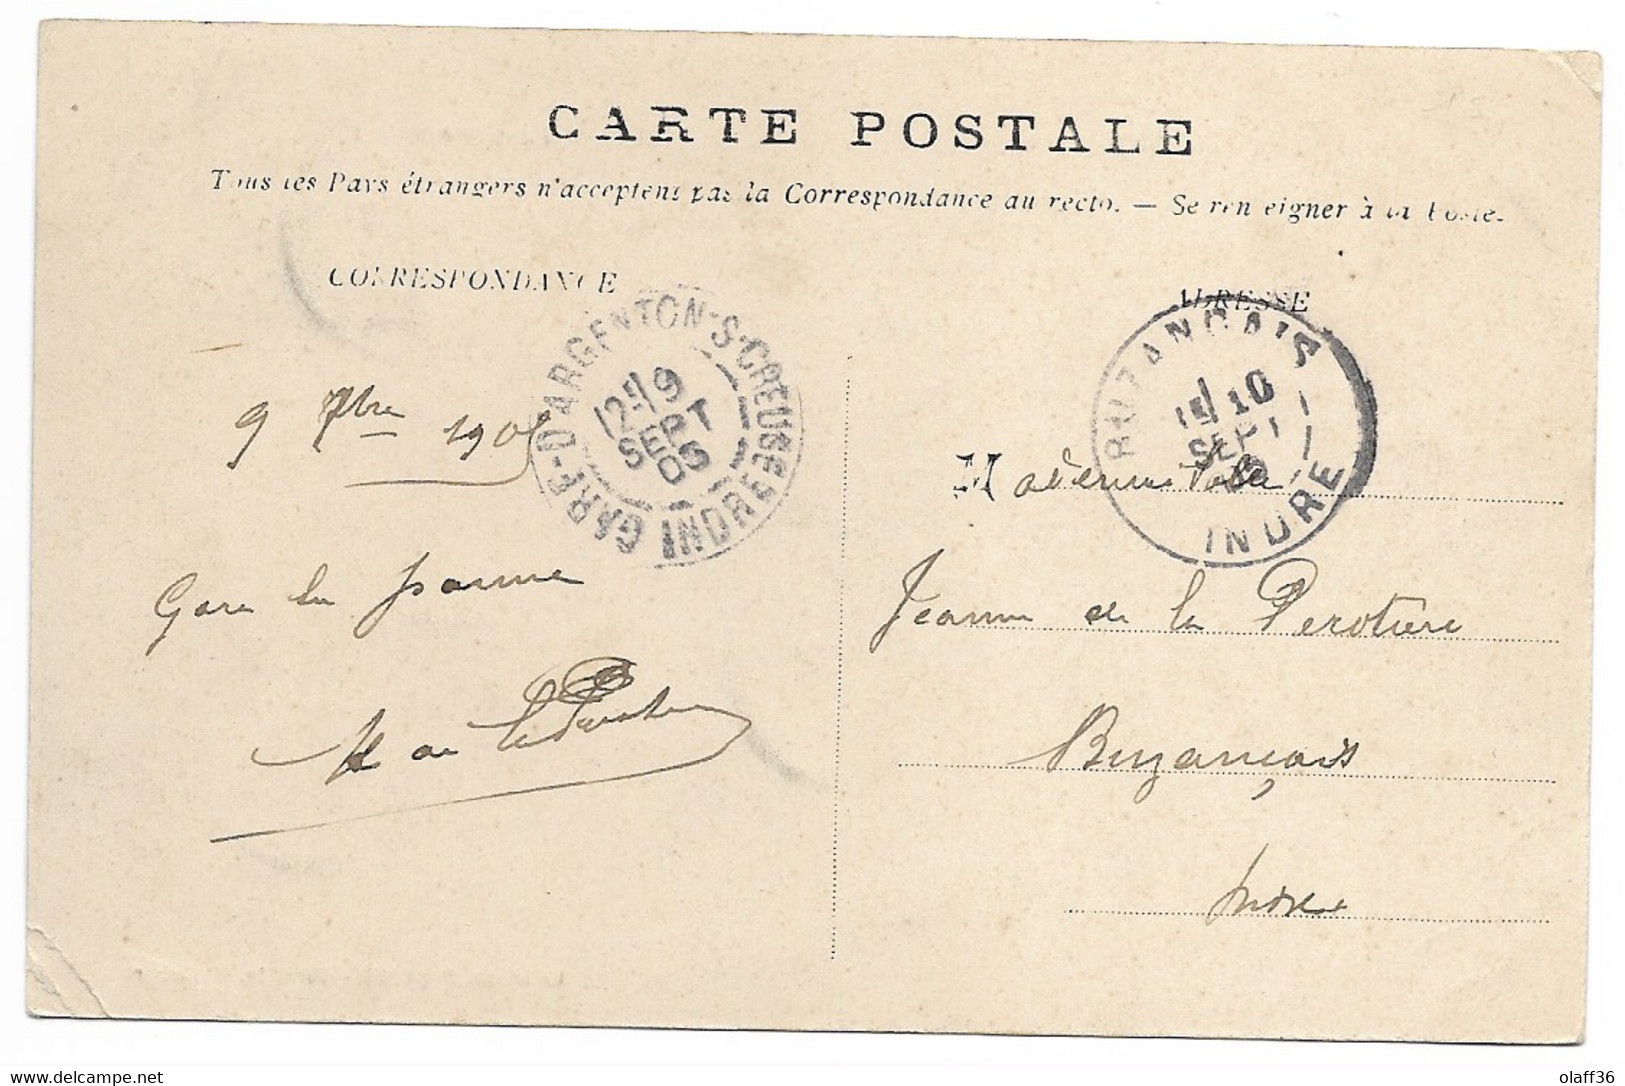 CARTE POSTALE
Tous les Pays étrangers n'acceptent pas la Correspondance au recto. — Se renseigner à la Poste.
CORRESPONDANCE
ADRESSE
GARE-D'ARGENTON-S-CREUSE INDRE
12 9
SEPT
05
BUZANCAIS INDRE
15 10
SEPT
05
9 7bre 1905
Gare la
Mademoiselle
Jeanne de la Perotiere
Buzançais
Indre
olaff36